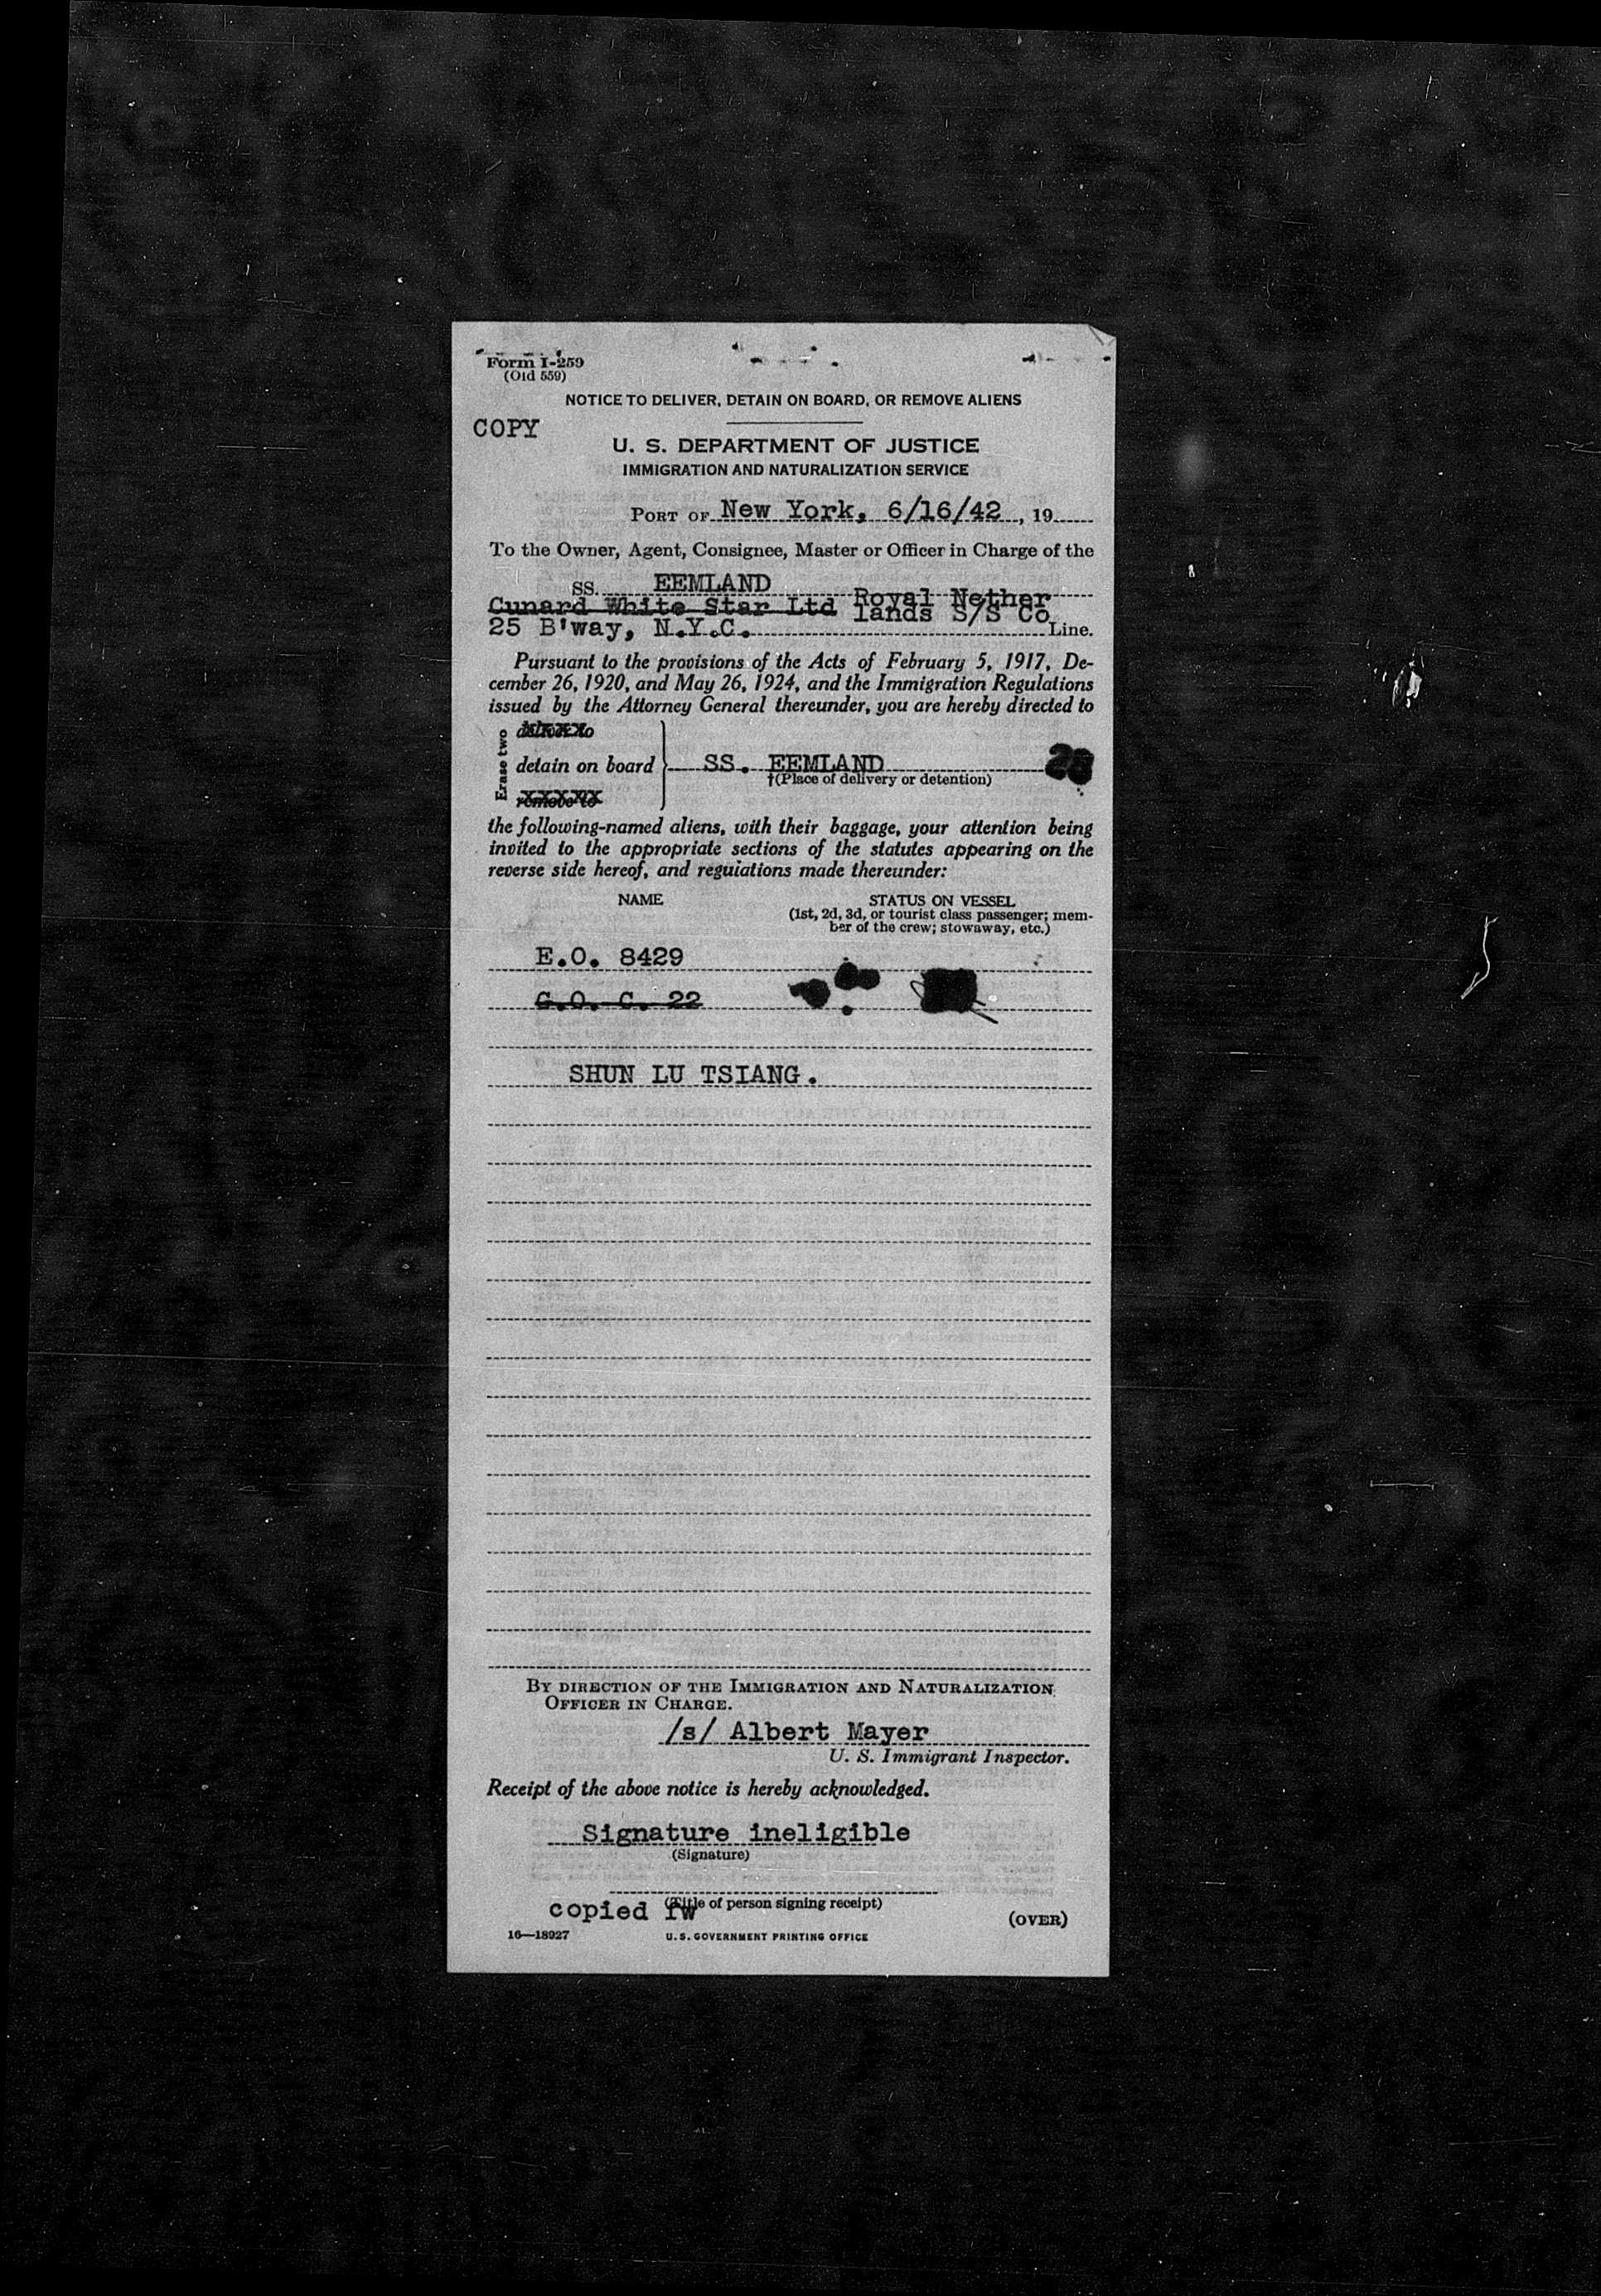 Form I-259
(Old 559)
NOTICE TO DELIVER, DETAIN ON BOARD, OR REMOVE ALIENS
COPY
U. S. DEPARTMENT OF JUSTICE
IMMIGRATION AND NATURALIZATION SERVICE
PORT OF New York, 6/16/42, 19
To the Owner, Agent, Consignee, Master or Officer in Charge of the
SS. EEMLAND
Cunard White Star Ltd Royal Nether
lands S/S Co
25 B'way, N.Y.C. Line.
Pursuant to the provisions of the Acts of February 5, 1917, De-
cember 26, 1920, and May 26, 1924, and the Immigration Regulations
issued by the Attorney General thereunder, you are hereby directed to
Erase two
deliver to
detain on board SS. EEMLAND 28
†(Place of delivery or detention)
remove to
the following-named aliens, with their baggage, your attention being
invited to the appropriate sections of the statutes appearing on the
reverse side hereof, and regulations made thereunder:
NAME STATUS ON VESSEL
(1st, 2d, 3d, or tourist class passenger; mem-
ber of the crew; stowaway, etc.)
E.O. 8429
G.O. C. 22
SHUN LU TSIANG.
BY DIRECTION OF THE IMMIGRATION AND NATURALIZATION
OFFICER IN CHARGE.
/s/ Albert Mayer
U. S. Immigrant Inspector.
Receipt of the above notice is hereby acknowledged.
Signature ineligible
(Signature)
(Title of person signing receipt)
copied fw
(OVER)
16—18927 U. S. GOVERNMENT PRINTING OFFICE